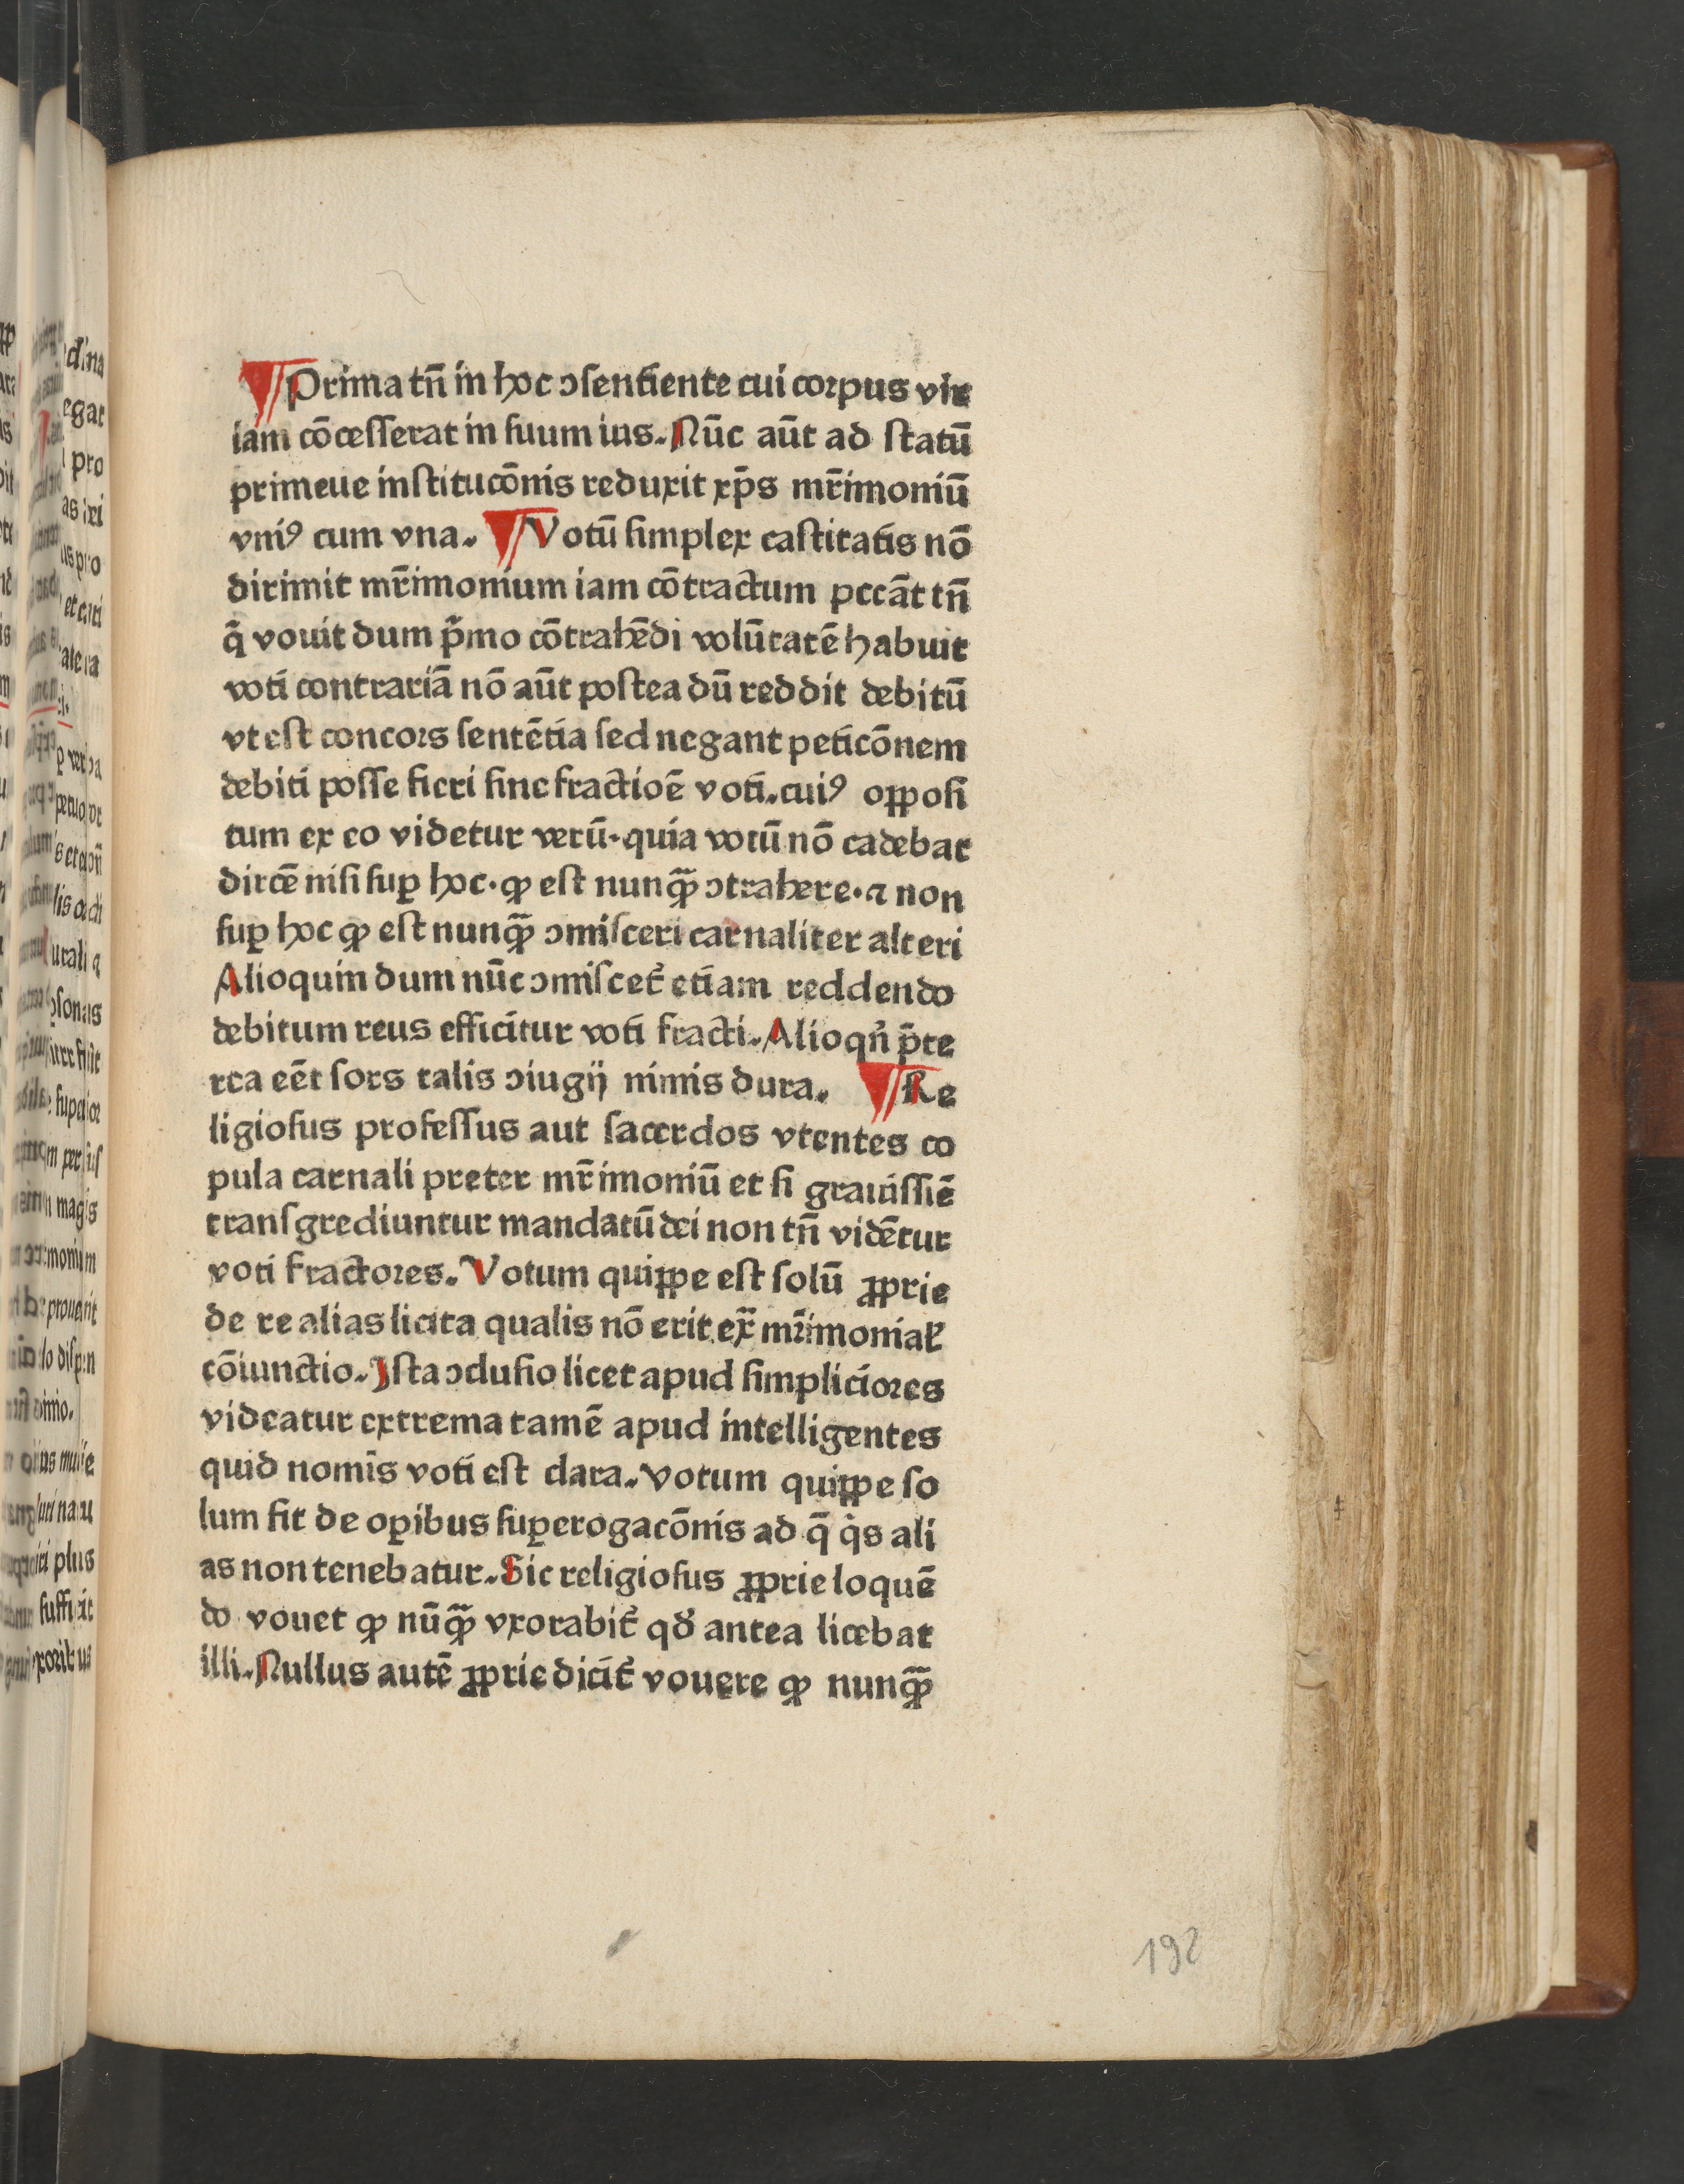 ¶ Prima tn̄ in hoc ɔſentiente cui corpus vir
iam cōceſſerat in ſuum ius. Nūc aūt ad ſtatū
primeue inſtitucōnis reduxit xp̄s mr̄imoniū
vniꝰ cum vna. ¶ Votū ſimplex caſtitatis nō
dirimit mr̄imonium iam cōtractum pccāt tn̄
q̄ vouit dum p̄mo cōtrahēdi volūtatē habuit
voti contrariā nō aūt poſtea dū reddit debitū
vt eſt concors ſentētia ſed negant peticōnem
debiti poſſe fieri ſine fractioē voti. cuiꝰ oppoſi
tum ex eo videtur verū. quia votū nō cadebat
dircē niſi ſuꝑ hoc. ꝙ eſt nunꝙ̄ ɔtrahere. ⁊ non
ſuꝑ hoc ꝙ eſt nunꝙ̄ ɔmiſceri carnaliter alteri
Alioquin dum nūc ɔmiſcet᷑ etiam reddendo
debitum reus efficitur voti fracti. Alioqn̄ p̄te
rea eēt ſors talis ɔiugij nimis dura. ¶ Re
ligioſus profeſſus aut ſacerdos vtentes co
pula carnali preter mr̄imoniū et ſi grauiſſiē
tranſgrediuntur mandatū dei non tn̄ vidētur
voti fractores. Votum quippe eſt ſolū ꝓprie
de re alias licita qualis nō erit ex̄ mr̄imonial̕
cōiunctio. Iſta ɔcluſio licet apud ſimpliciores
videatur extrema tamē apud intelligentes
quid nomīs voti eſt clara. Votum quippe ſo
lum fit de oꝑibus ſuꝑerogacōnis ad q̄ qͥs ali
as non tenebatur. Sic religioſus ꝓprie loquē
do vouet ꝙ nūꝙ̄ vxorabit᷑ qd̕ antea licebat
illi. Nullus autē ꝓprie dicit᷑ vouere ꝙ nunꝙ̄
192